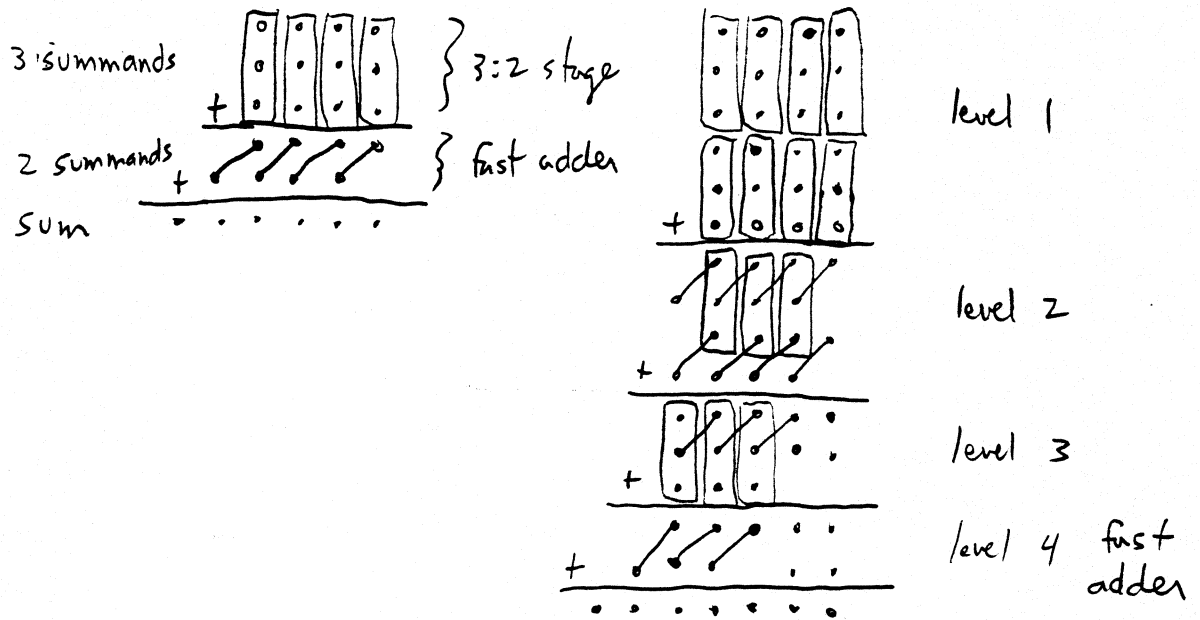 3 summands
3:2 stage
+
2 summands
fast adder
+
sum
level 1
+
level 2
+
level 3
+
level 4 fast
adder
+